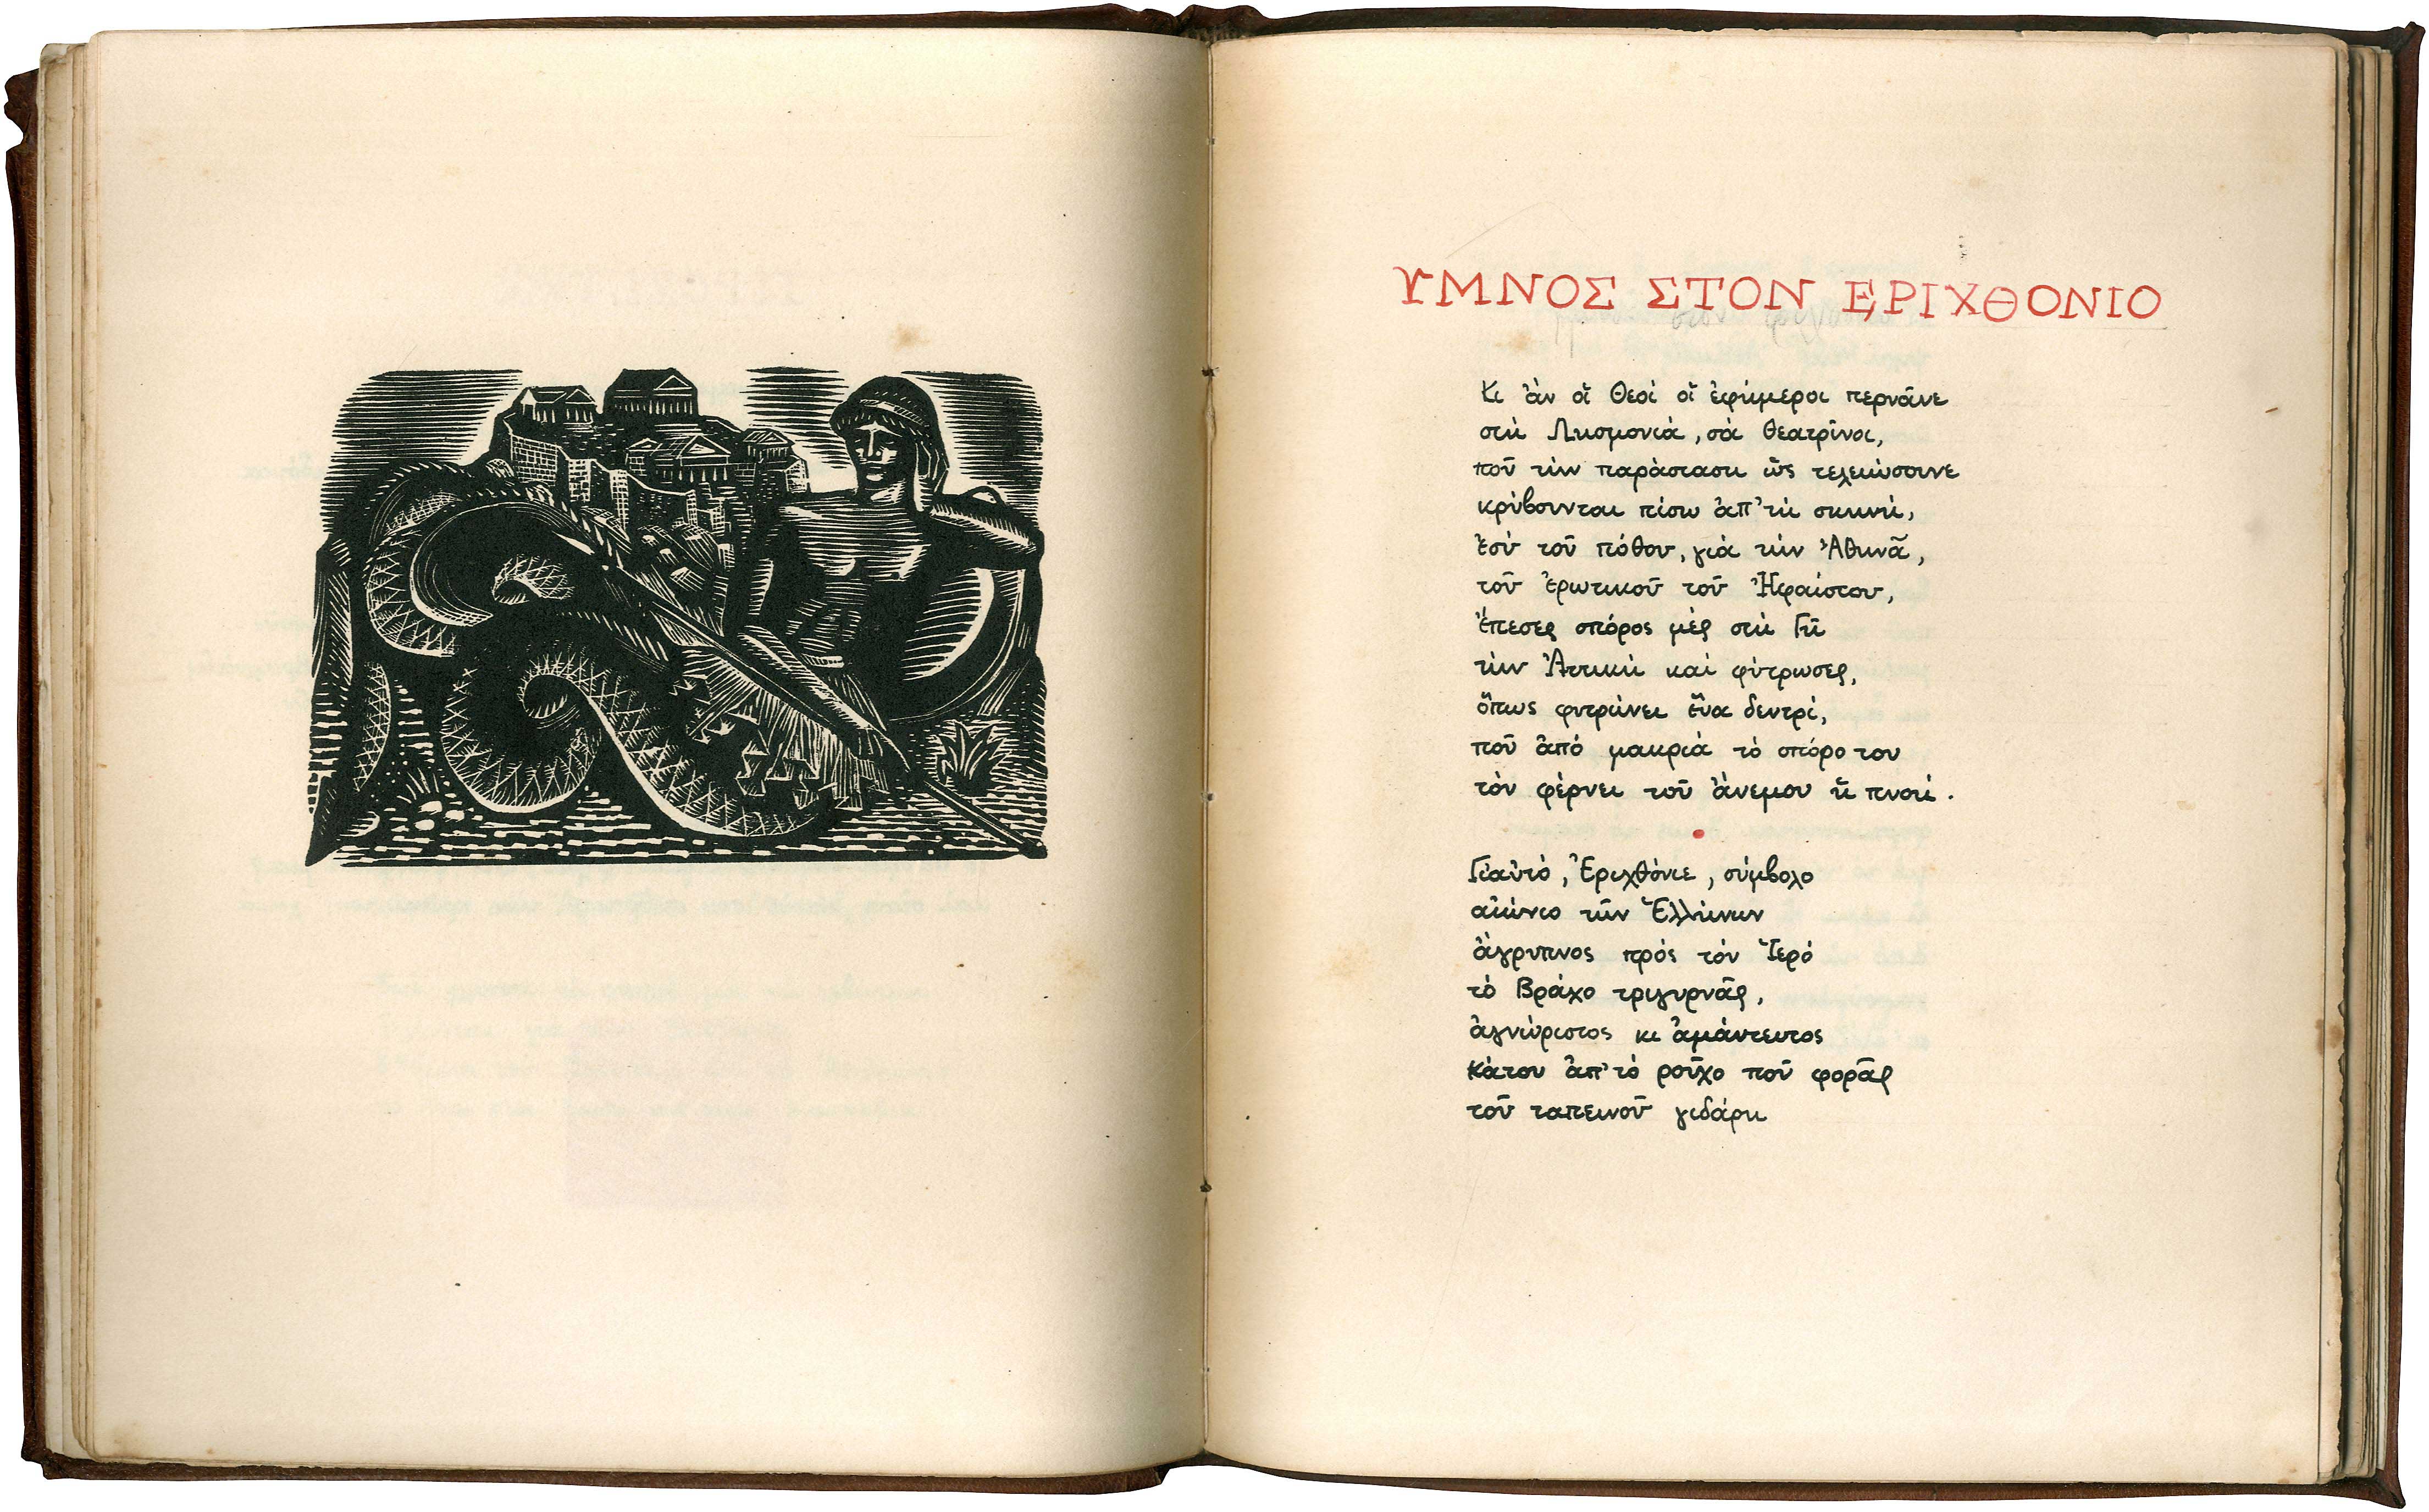 ΥΜΝΟΣ ΣΤΟΝ ΕΡΙΧΘΟΝΙΟ
Κι ἂν οἱ Θεοί οἱ ἐφήμεροι περνᾶνε
στή Λησμονιά, σά θεατρῖνοι,
ποῦ τήν παράσταση ὣς τελειώσουνε
κρύβουνται πίσω ἀπ' τή σκηνή,
ἐσύ τοῦ πόθου, γιά τήν Ἀθηνᾶ,
τοῦ ἐρωτικοῦ τοῦ Ἡφαίστου,
ἔπεσες σπόρος μές στή Γῆ
τήν Ἀττική καί φύτρωσες,
ὅπως φυτρώνει ἕνα δεντρί,
ποῦ ἀπό μακριά τό σπόρο του
τόν φέρνει τοῦ ἀνεμου ἡ πνοή.
Γιαὐτό, Ἐριχθόνιε, σύμβολο
αἰώνιο τῶν Ἑλλήνων
ἄγρυπνος πρός τόν Ἱερό
τό Βράχο τριγυρνᾶς,
ἀγνώριστος κι ἀμάντευτος
κάτου ἀπ' τό ροῦχο ποῦ φορᾶς
τοῦ ταπεινοῦ γιδάρη